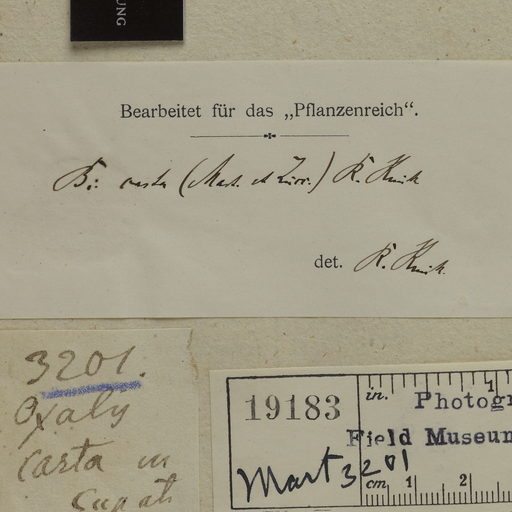 UNG
Bearbeitet für das „Pflanzenreich“.
B.: casta (Mart. et Zucc.) R. Knuth
det. R. Knuth.
3201.
Oxalis
casta in
19183
in. 1 Photogr
Field Museum
Mart 3201
cm 1 2